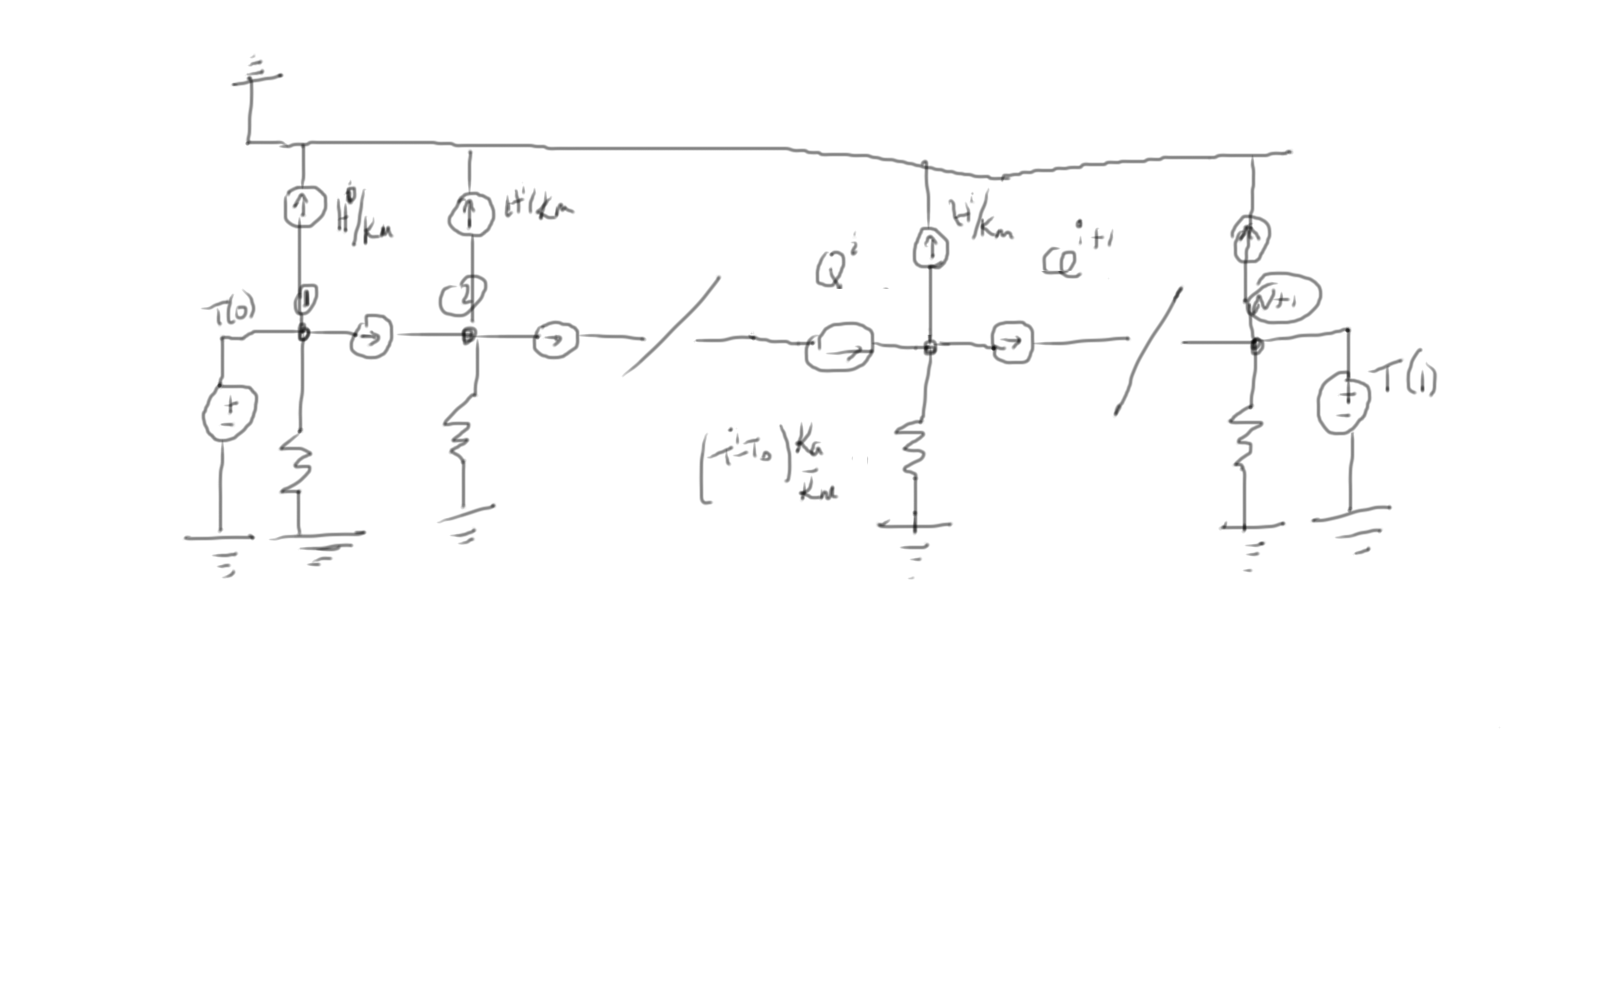 H⁰/Km
H¹/Km
Hⁱ/Km
Qⁱ
Qⁱ⁺¹
1
2
N+1
T(0)
+
-
T(1)
+
-
(Tⁱ-T₀) Ka/Km